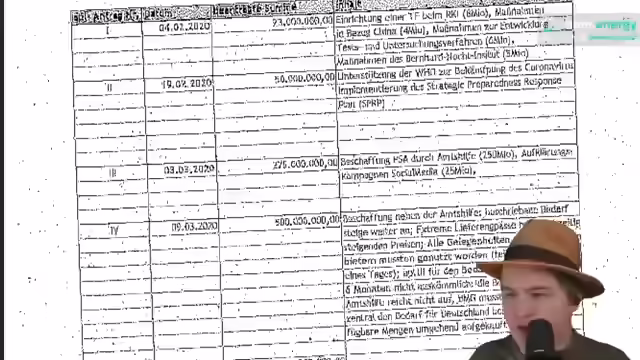 Datum Beantragte Summe Inhalte
I 04.02.2020 23.000.000,00 Einrichtung einer TF beim RKI (6Mio), Maßnahmen
in Bezug China (4Mio), Maßnahmen zur Entwicklung
Tests- und Untersuchungsverfahren
Maßnahmen des Bernhard-Nocht-Institut
II 19.02.2020 50.000.000,00 Unterstützung der WHO zur Bekämpfung des Coronavirus
Implementierung des Strategic Preparedness Response
Plan (SPRP)
III 03.03.2020 275.000.000,00 Beschaffung PSA durch Amtshilfe (250Mio), Aufklärungs
Kampagnen SocialMedia (25Mio),
IV 09.03.2020 500.000.000,00 Beschaffung neben der Amtshilfe; beschriebene Bedarf
steige weiter an; Extreme Lieferengpässe
steigenden Preisen; Alle Gelegenheiten
bietern mussten genutzt werden
eines Tages); für den
6 Monaten nicht auskömmlich; die
Amtshilfe reicht nicht aus, BMG
zentral den Bedarf für Deutschland
fügbare Mengen umgehend aufgekauft
energy